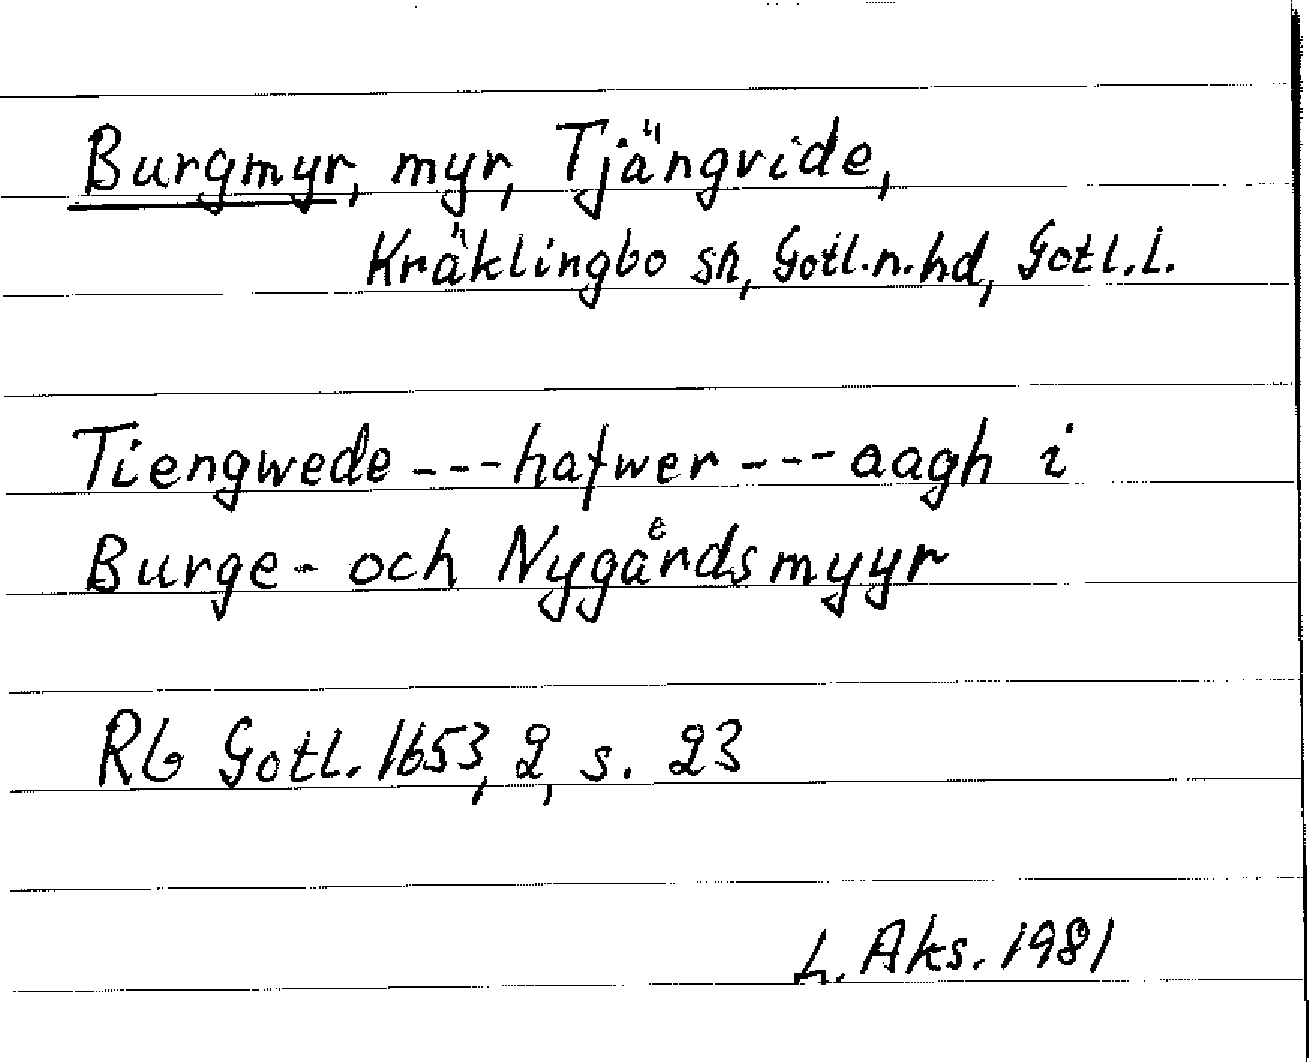 Burgmyr, myr, Tjängvide,
Kräklingbo sn, Gotl.n.hd, Gotl.l.
Tiengwede---hafwer---aagh i
Burge- och Nygaͤrdsmyyr
Rb Gotl. 1653, 2, s. 23
L. Aks. 1981